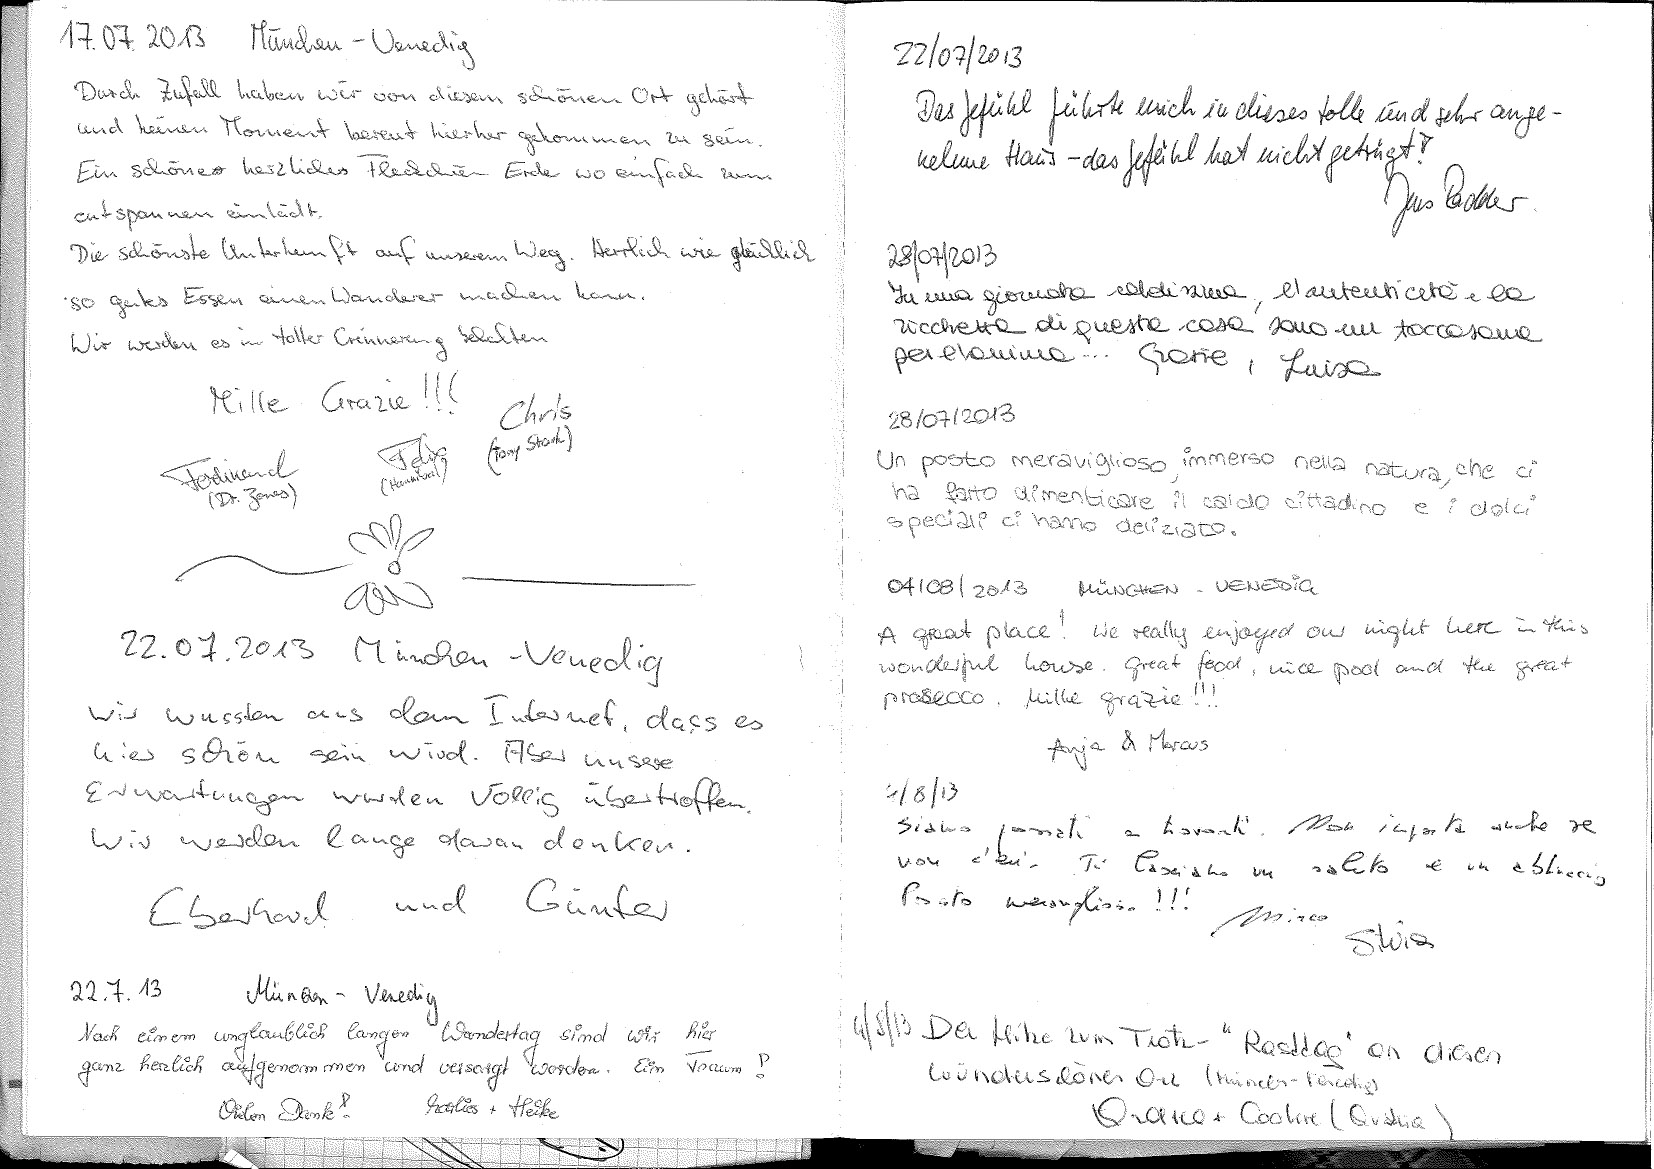 17.07.2013 München - Venedig
Durch Zufall haben wir von diesem schönen Ort gehört
und keinen Moment bereut hierher gekommen zu sein.
Ein schönes herzliches Fleckchen Erde wo einfach zum
entspannen einlädt.
Die schönste Unterkunft auf unserem Weg. Herrlich wie glücklich
so gutes Essen einen Wanderer machen kann.
Wir werden es in toller Erinnerung behalten
Mille Grazie!!!
Chris
(Tony Stark)
Felix
(Hannibal)
Ferdinand
(Dr. Jones)
22.07.2013 München - Venedig
Wir wussten aus dem Internet, dass es
hier schön sein wird. Aber unsere
Erwartungen wurden völlig übertroffen.
Wir werden lange daran denken.
Eberhard und Günter
22.7.13 München - Venedig
Nach einem unglaublich langen Wandertag sind wir hier
ganz herzlich aufgenommen und versorgt worden. Ein Traum!
Vielen Dank! + Heike
22/07/2013
Das Gefühl führte mich in dieses tolle und sehr ange-
nehme Haus - das Gefühl hat nicht getrügt!
Jens
28/07/2013
In una giornata caldissima, l'autenticità e la
ricchezza di questa casa sono un toccasana
per l'anima... Grazie, Luisa
28/07/2013
Un posto meraviglioso, immerso nella natura, che ci
ha fatto dimenticare il caldo cittadino e i dolci
speciali ci hanno deliziato.
04/08/2013 MÜNCHEN - VENEDIG
A great place! We really enjoyed our night here in this
wonderful house. Great food, nice pool and the great
prosecco. Mille grazie!!!
Anja & Marcus
4/8/13
Siamo passati a trovarti. Non importa anche se
non c'eri. Ti lasciamo un saluto e un abbraccio
Posto meraviglioso!!!
Mirco
Silvia
4/8/13 Der Hitze zum Trotz - "Rasttag" an diesen
wunderschönen Ort (München - Venedig)
+ (Austria)